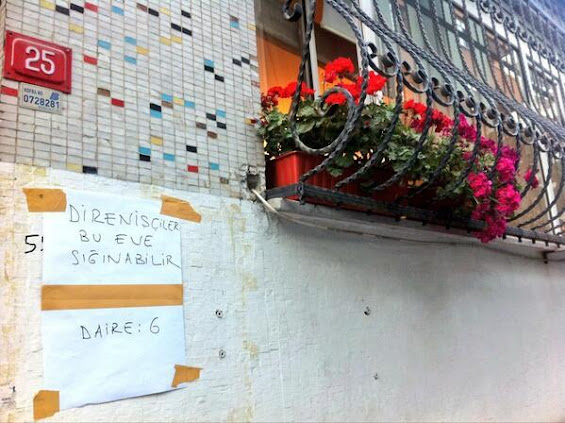 25
0728281
DİRENİSÇİLER
BU EVE
SIĞINABİLİR
DAİRE: 6